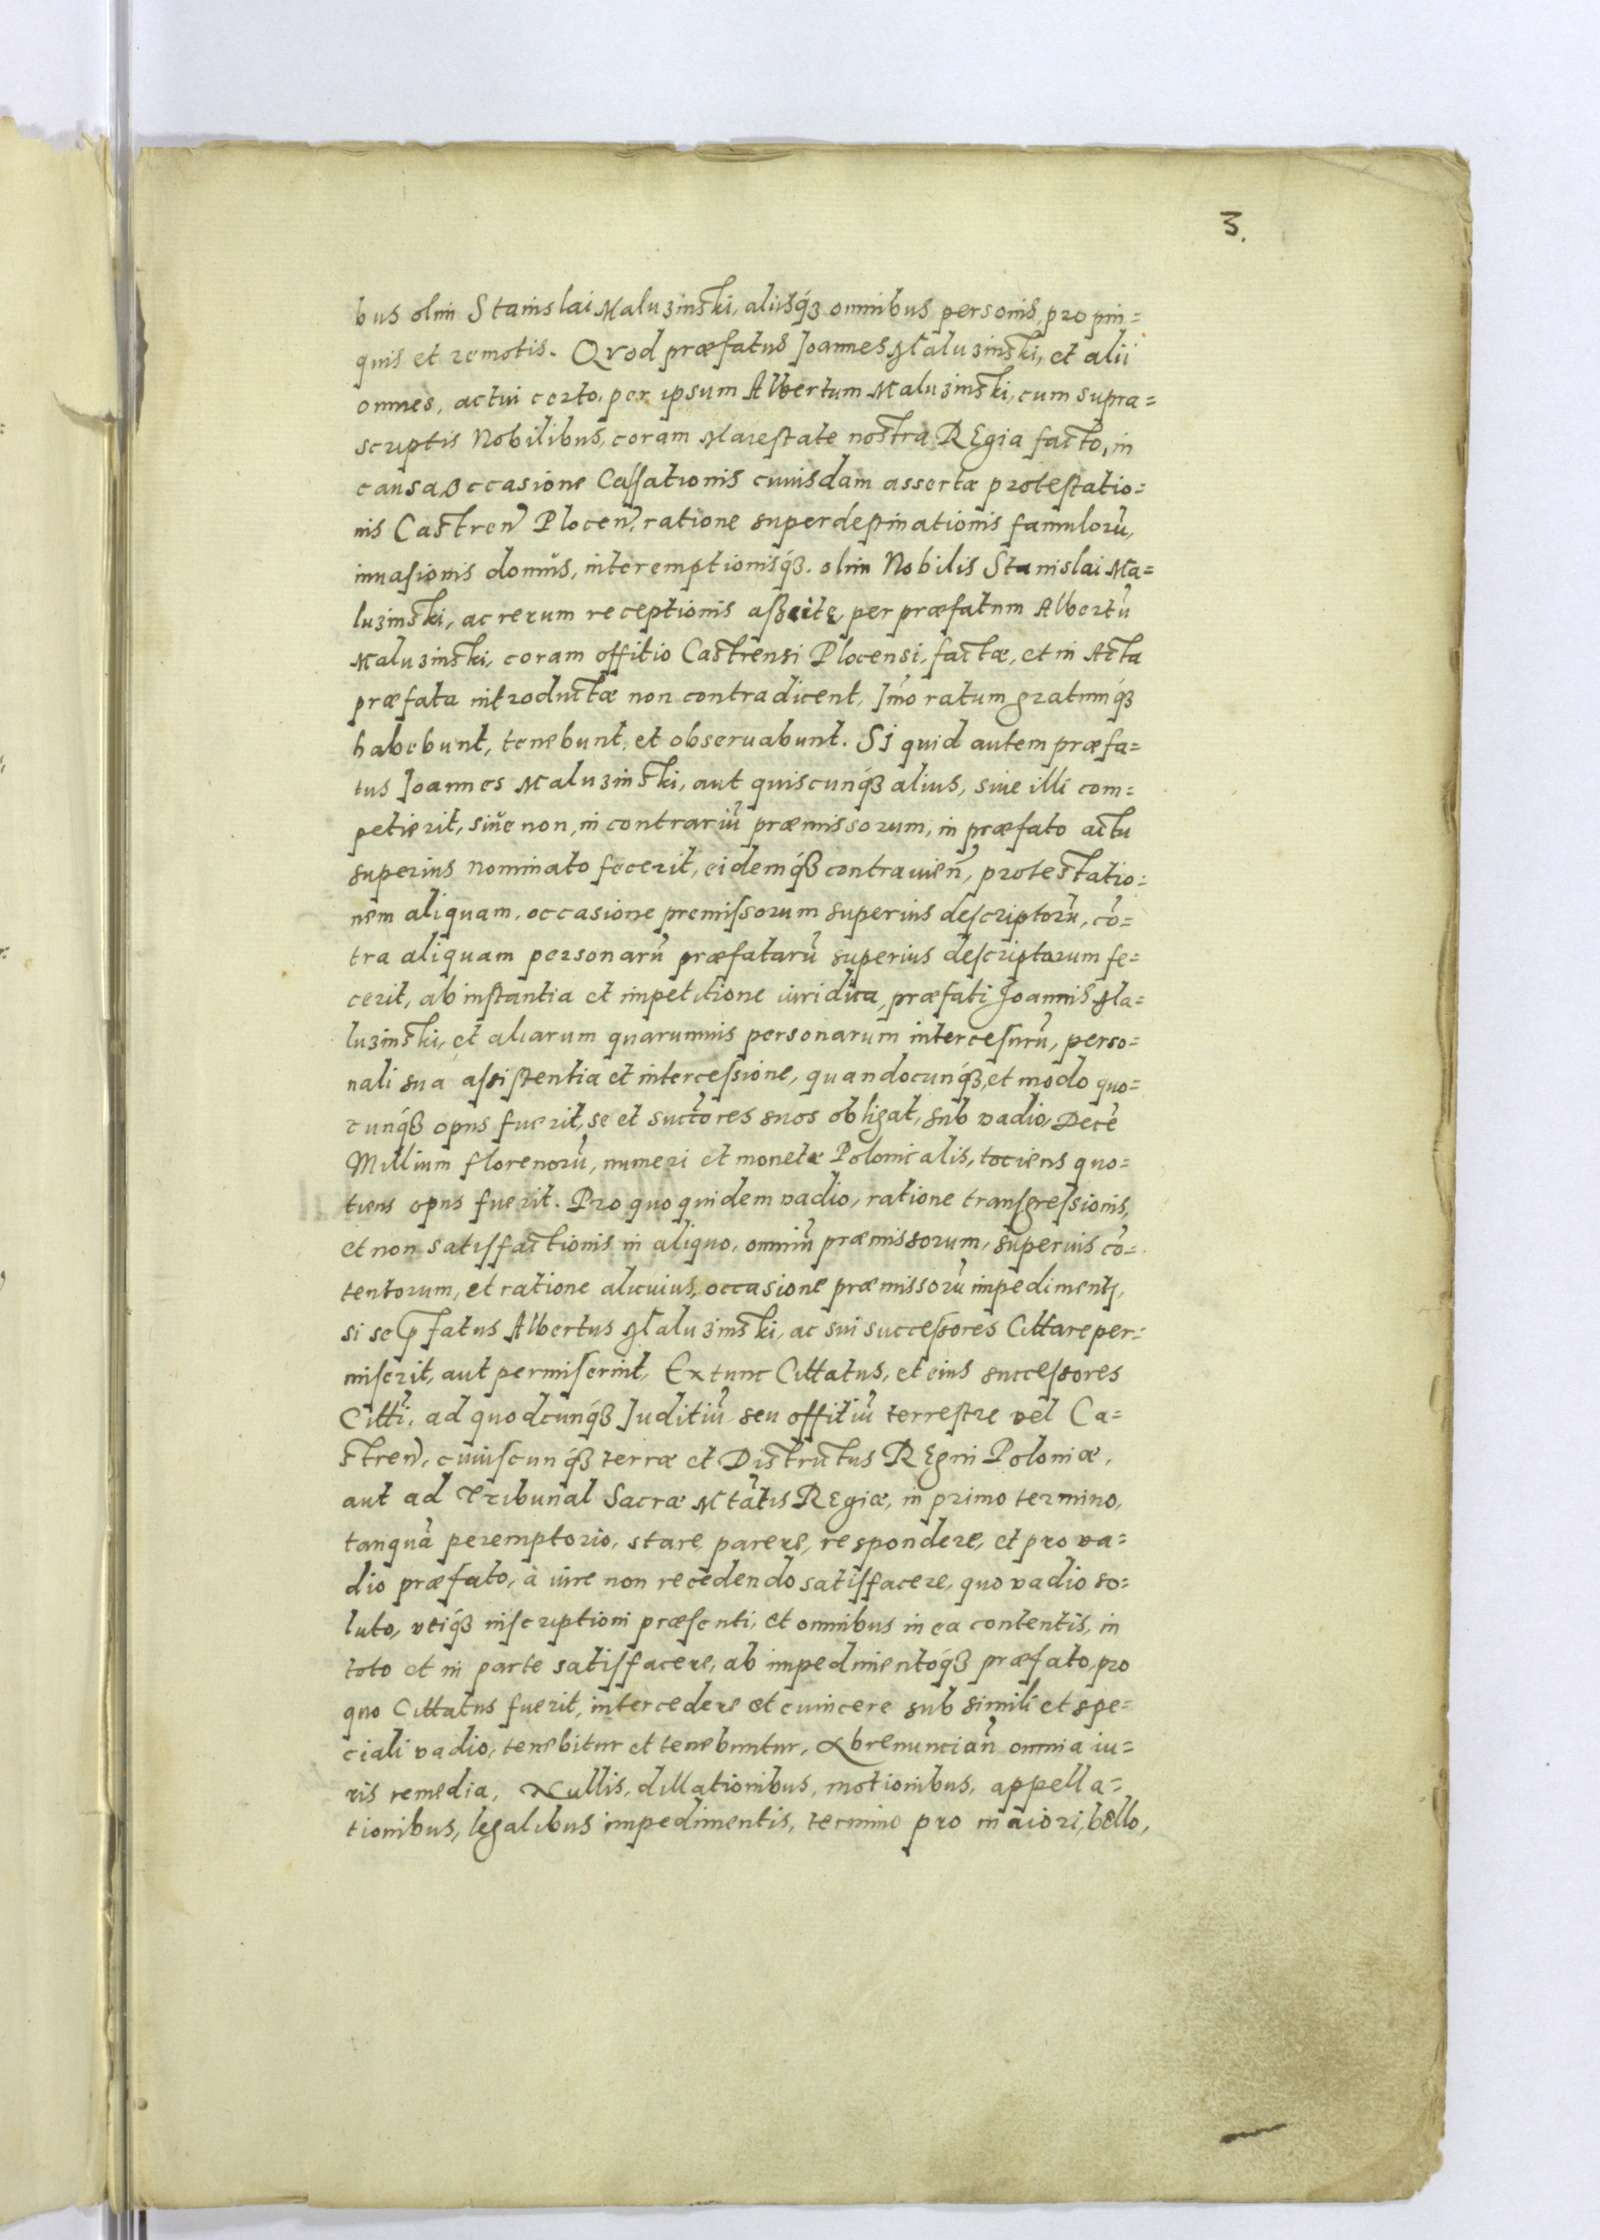 3.
bus olim Stanislai Maluzinski, aliisq́ꝫ omnibus personis, propin=
quis et remotis. Qvod præfatus Joannes Maluzinski, et alii
omnes, actui certo, per ipsum Albertum Maluzinski, cum supra=
scriptis Nobilibus, coram Maiestate nostra REgia facto, in
causa, occasione Cassationis cuiusdam assertæ protestatio=
nis Castren̄ Plocen̄, ratione superdestinationis famulorū,
inuasionis domûs, interemptionisq́ꝫ. olim Nobilis Stanislai Ma=
luzinski, ac rerum receptionis assertę, per præfatum Albertū
Maluzinski, coram offitio Castrensi Plocensi, factæ, et in Acta
præfata introductæ non contradicent, Jmō ratum gratumq́ꝫ
habebunt, tenebunt, et obseruabunt. Si quid autem præfa=
tus Joannes Maluzinski, aut quiscunq́ꝫ alius, siue illi com=
petierit, siue non, in contrariū præmissorum, in præfato actu
superius nominato fecerit, eidemq́ꝫ contrauien̄, protestatio=
nem aliquam, occasione premissorum superius descriptorū, cō=
tra aliquam personarū præfatarū superius descriptarum fe=
cerit, ab instantia et impetitione iuridica, præfati Joannis Ma=
luzinski, et aliarum quarumuis personarum intercessurū, perso=
nali sua assistentia et intercessione, quandocunq́ꝫ, et modo quo=
cunq́ꝫ opus fuerit, se et succ̄tores suos obligat, sub vadio, Decē
Millium florenorū, numeri et monetæ Polonicalis, tociens quo=
tiens opus fuerit. Pro quo quidem vadio, ratione transgressionis,
et non satisfactionis in aliquo, omniū præmissorum, superius cō=
tentorum, et ratione alicuius, occasione præmissorū impedimenti,
si seꝑfatus Albertus Maluzinski, ac sui successores Cittare per=
miserit, aut permiserint, Extunc Cittatus, et eius successores
Citti̅, ad quodcunq́ꝫ Juditiū seu offitiū terrestre vel Ca=
stren̄, cuiuscunq́ꝫ terræ et Districtus REgni Poloniæ,
aut ad Tribunal Sacræ Mtātis REgiæ, in primo termino,
tanquā peremptorio, stare, parere, respondere, et pro va=
dio præfato, à iure non recedendo satisfacere, quo vadio so=
luto, vtiq́ꝫ inscriptioni præsenti, et omnibus in ea contentis, in
toto et in parte satisfacere, ab impedimentoq́ꝫ præfato, pro
quo Cittatus fuerit, intercedere et euincere sub simili et spe=
ciali vadio, tenebitur et tenebuntur, Abrenuncian̄ omnia iu=
ris remedia, Nullis, dillationibus, motionibus, appella=
tionibus, legalibus impedimentis, termino pro maiori, bello,